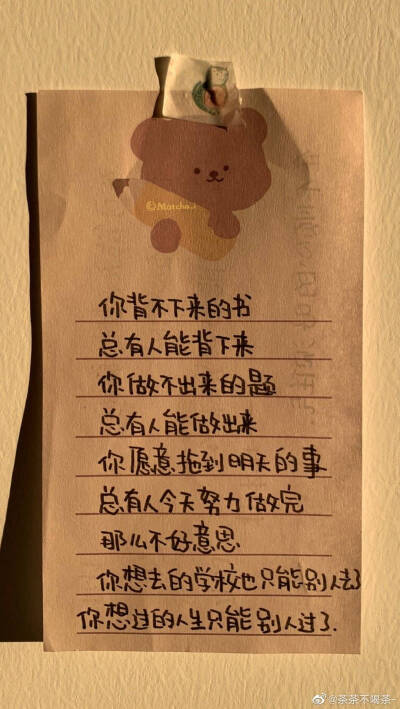 ©Matcha.J
你背不下来的书
总有人能背下来
你做不出来的题
总有人能做出来
你愿意拖到明天的事
总有人今天努力做完
那么不好意思
你想去的学校也只能别人去了
你想过的人生只能别人过了.
@茶茶不喝茶-